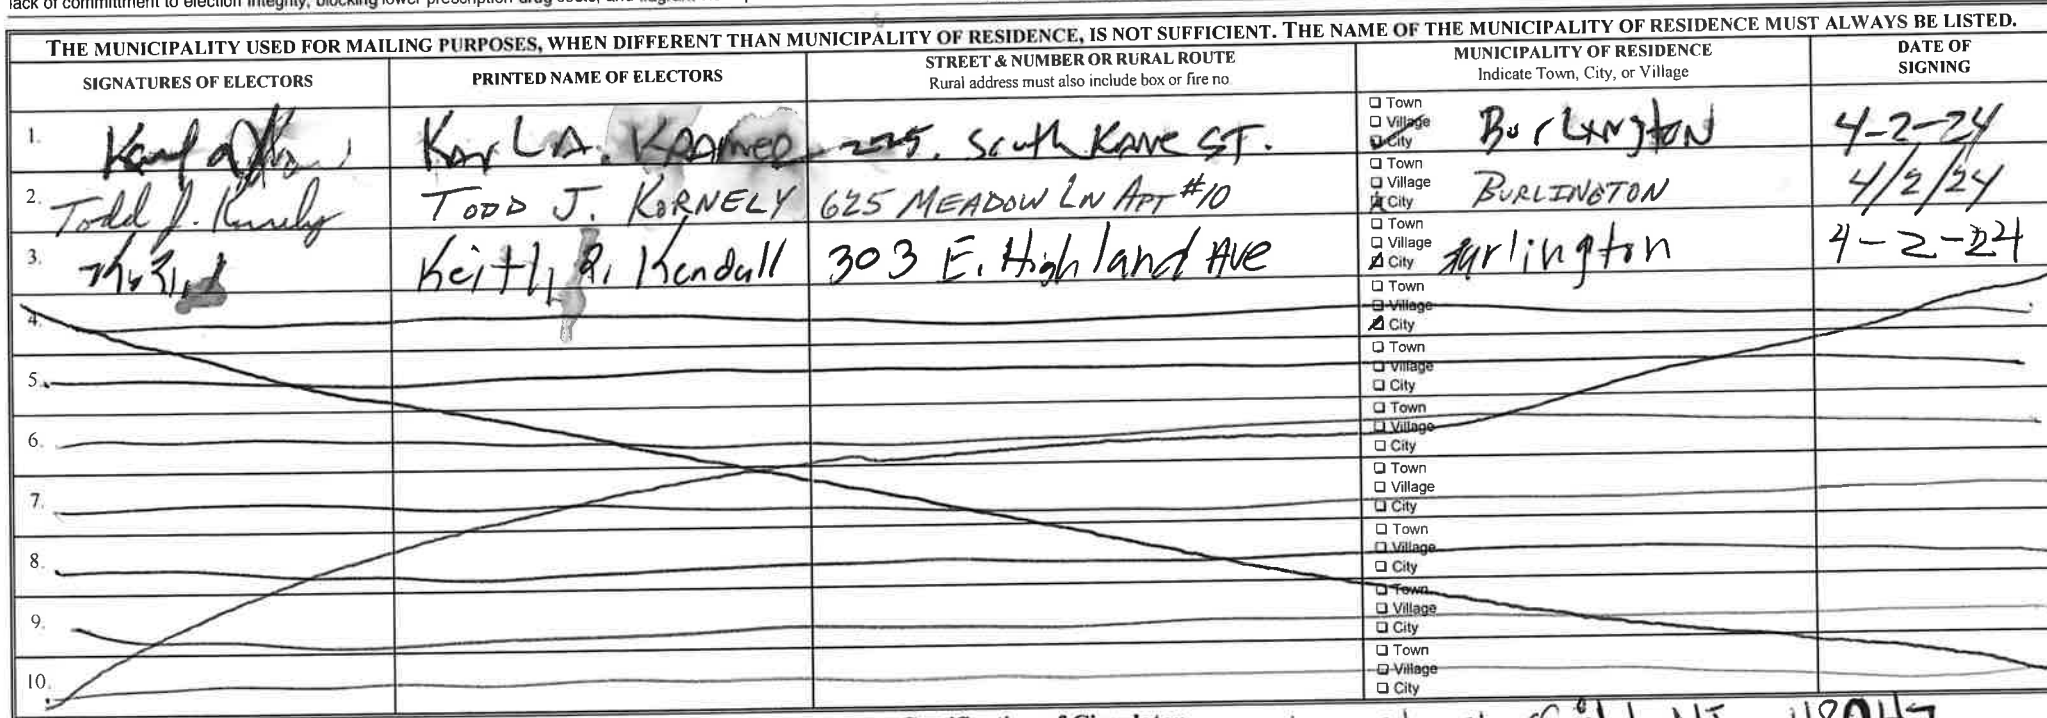 lack of committment to election integrity, blocking lower prescription drug costs, and
THE MUNICIPALITY USED FOR MAILING PURPOSES, WHEN DIFFERENT THAN MUNICIPALITY OF RESIDENCE, IS NOT SUFFICIENT. THE NAME OF THE MUNICIPALITY OF RESIDENCE MUST ALWAYS BE LISTED.
SIGNATURES OF ELECTORS PRINTED NAME OF ELECTORS STREET & NUMBER OR RURAL ROUTE MUNICIPALITY OF RESIDENCE DATE OF SIGNING
Rural address must also include box or fire no. Indicate Town, City, or Village
Town
1. Karl A. KRAMER South KANE ST. Village BurLINgtoN 4-2-24
City
Town
2. Todd J. Kornely TODD J. KORNELY 625 MEADOW LN APT #10 Village BURLINGTON 4/2/24
City
Town
3. Keith R. Kendall 303 E. Highland Ave Village urlington 4-2-24
City
Town
4. Village
City
Town
5. Village
City
Town
6. Village
City
Town
7. Village
City
Town
8. Village
City
Town
9. Village
City
Town
10. Village
City